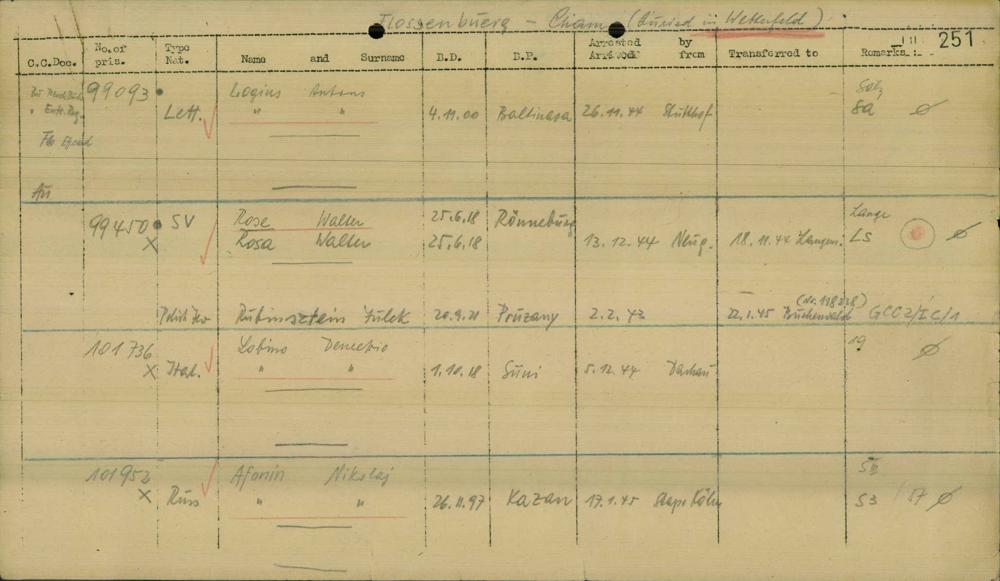 Flossenbuerg - Cham (Buried in Wetterfeld)
251
C.C.Doc. No. of pris. Type Nat. Name and Surname D.D. D.P. Arrested Arrived by from Transferred to Remarks
99093 Logins Antons
Lett. " " 4.11.00 Baltinava 26.11.44 Stutthof Sa ∅
99450 SV Rose Walter 25.6.18 Rönneburg Lange
X Rosa Walter 25.6.18 13.12.44 Neug. 18.11.44 Langen. LS ∅
(Nr. 118238)
Rubinsztein Julek 20.9.21 Pruzany 2.2.43 22.1.45 Buchenwald GCC2/IC/1
101736 Lobino Demetrio 19 ∅
X Ital. " " 1.10.18 Suni 5.12.44 Dachau
101952 Afonin Nikolaj
X Russ " " 26.11.97 Kazan 17.1.45 S3 / 57 ∅